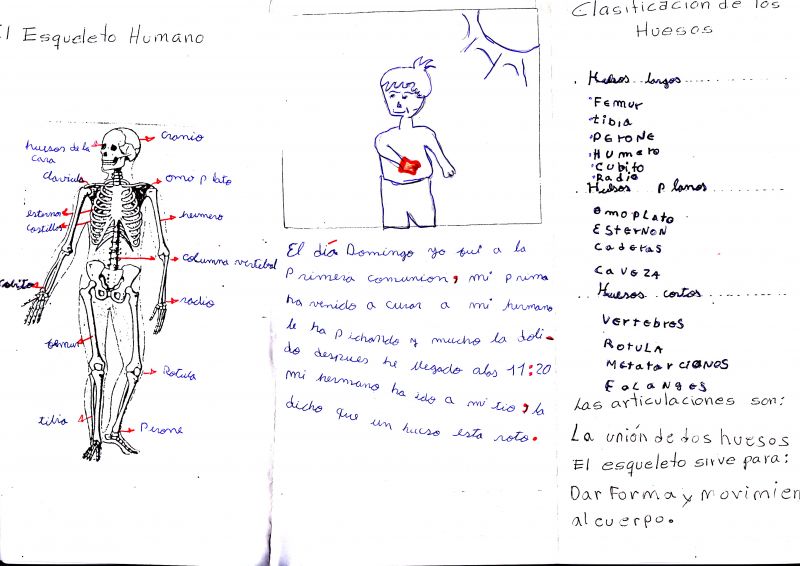 El Esqueleto Humano
huesos de la
cara
cranio
clavicula
omo plato
esternon
costillas
humero
columna vertebral
cubito
radio
femur
Rotula
tibia
Perone
El día Domingo yo fui a la
Primera comunion, mi primo
ha venido a curar a mi hermano
le ha pichando y mucho la doli-
do despues he llegado alas 11:20
mi hermano ha ido a mi tio, la
dicho que un hueso esta roto.
Clasificación de los
Huesos
. Huesos largos
Femur
tibia
PERONE
Humero
Cubito
Radio
Huesos planos
omoplato
Esternon
caderas
caveza
Huesos cortos
Vertebros
Rotula
Metatarcianos
Falanges
Las articulaciones son:
La unión de dos huesos
El esqueleto sirve para:
Dar Forma y movimien
al cuerpo.